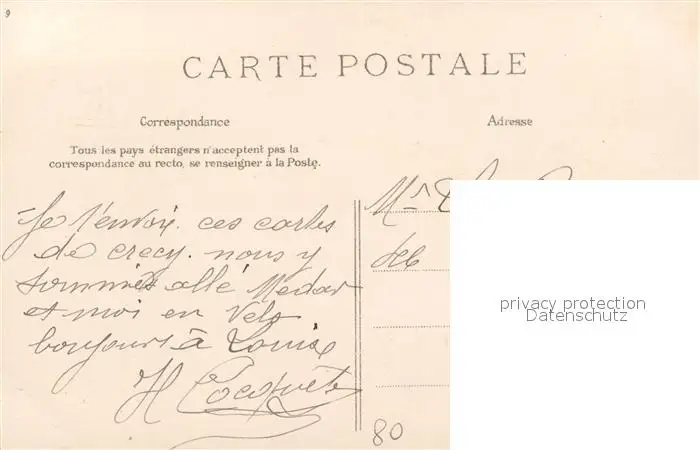 9
CARTE POSTALE
Correspondance
Adresse
Tous les pays étrangers n'acceptent pas la
correspondance au recto, se renseigner à la Poste.
Je t'envoie ces cartes
de crecy. nous y
sommes allé Medar
et moi en Velo
bonjours à Louise
H Cocquete
privacy protection
Datenschutz
80